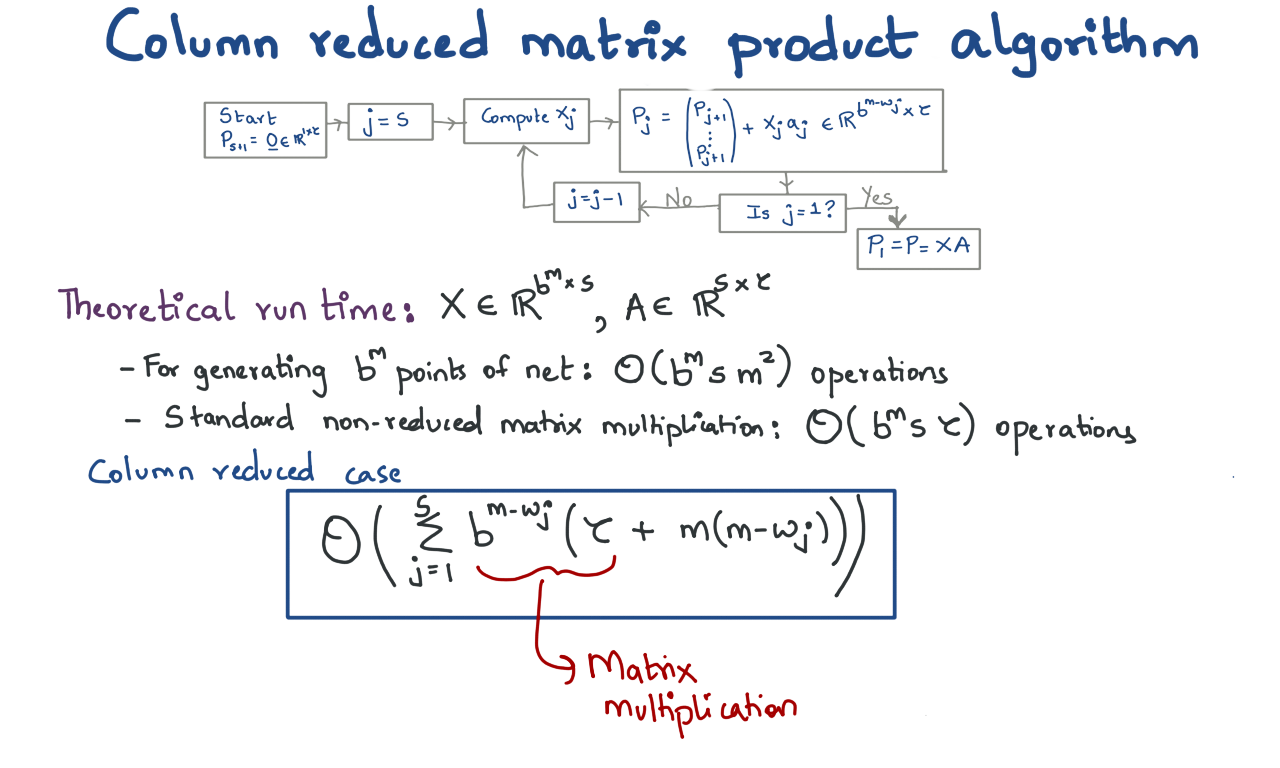 Column reduced matrix product algorithm
Start
P_{s+1} = 0 ∈ ℝ^{1×τ}
j = s
Compute X_j
P_j = (P_{j+1} ⋮ P_{j+1}) + x_j a_j ∈ ℝ^{b^{m-w_j} × τ}
j = j-1
No
Is j = 1?
Yes
P_1 = P = XA
Theoretical run time: X ∈ ℝ^{b^m × s}, A ∈ ℝ^{s × τ}
- For generating b^m points of net: O(b^m s m^2) operations
- Standard non-reduced matrix multiplication: O(b^m s τ) operations
Column reduced case
O(∑_{j=1}^{s} b^{m-w_j} (τ + m(m-w_j)))
Matrix
multiplication